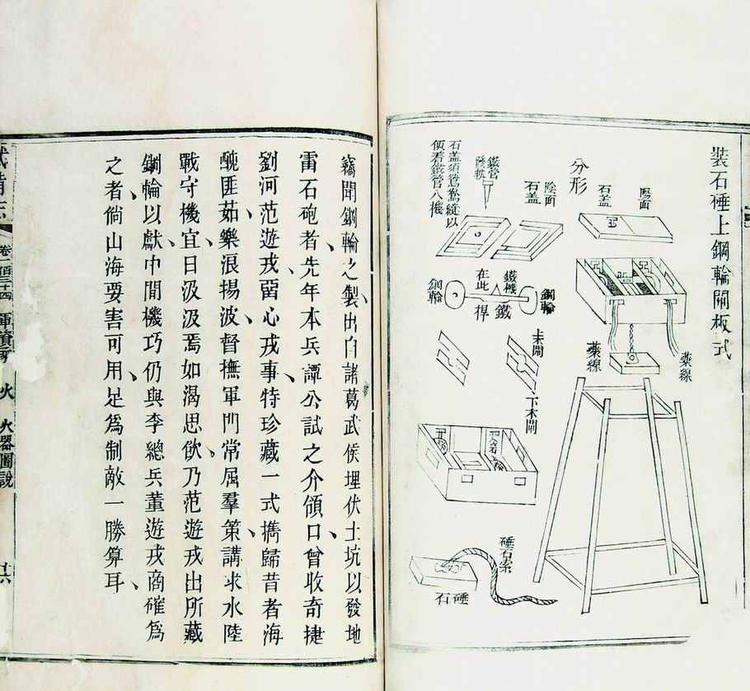 裝石硾上鋼輪閘板式
分形
陽面
石盖
陰面
石盖
鐵管
石盖須鴛鴦縫以
便着鐵管入機
鋼輪
鐵機
在此
鐵
桿
鋼輪
上木閘
下木閘
藥線
藥線
硾石索
石硾
竊聞鋼輪之製出自諸葛武侯埋伏土坑以發地
雷石砲者先年本兵譚公試之介領口曾收奇捷
劉河范遊戎畱心戎事特珍藏一式攜歸昔者海
醜匪茹樂浪揚波督撫軍門常屈羣策講求水陸
戰守機宜日汲汲焉如渴思飲乃范遊戎出所藏
鋼輪以獻中間機巧仍與李總兵董遊戎商確爲
之者倘山海要害可用足爲制敵一勝算耳
武備志 卷一百三十四 軍資乘 火 火器圖說 十六